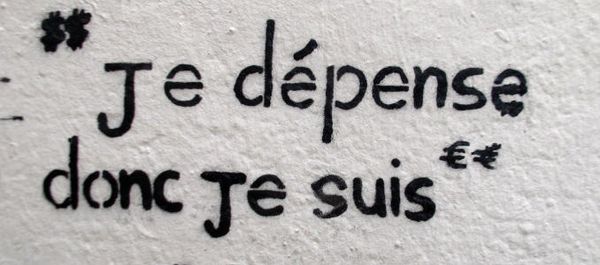 $$ Je dépense
donc Je suis €€